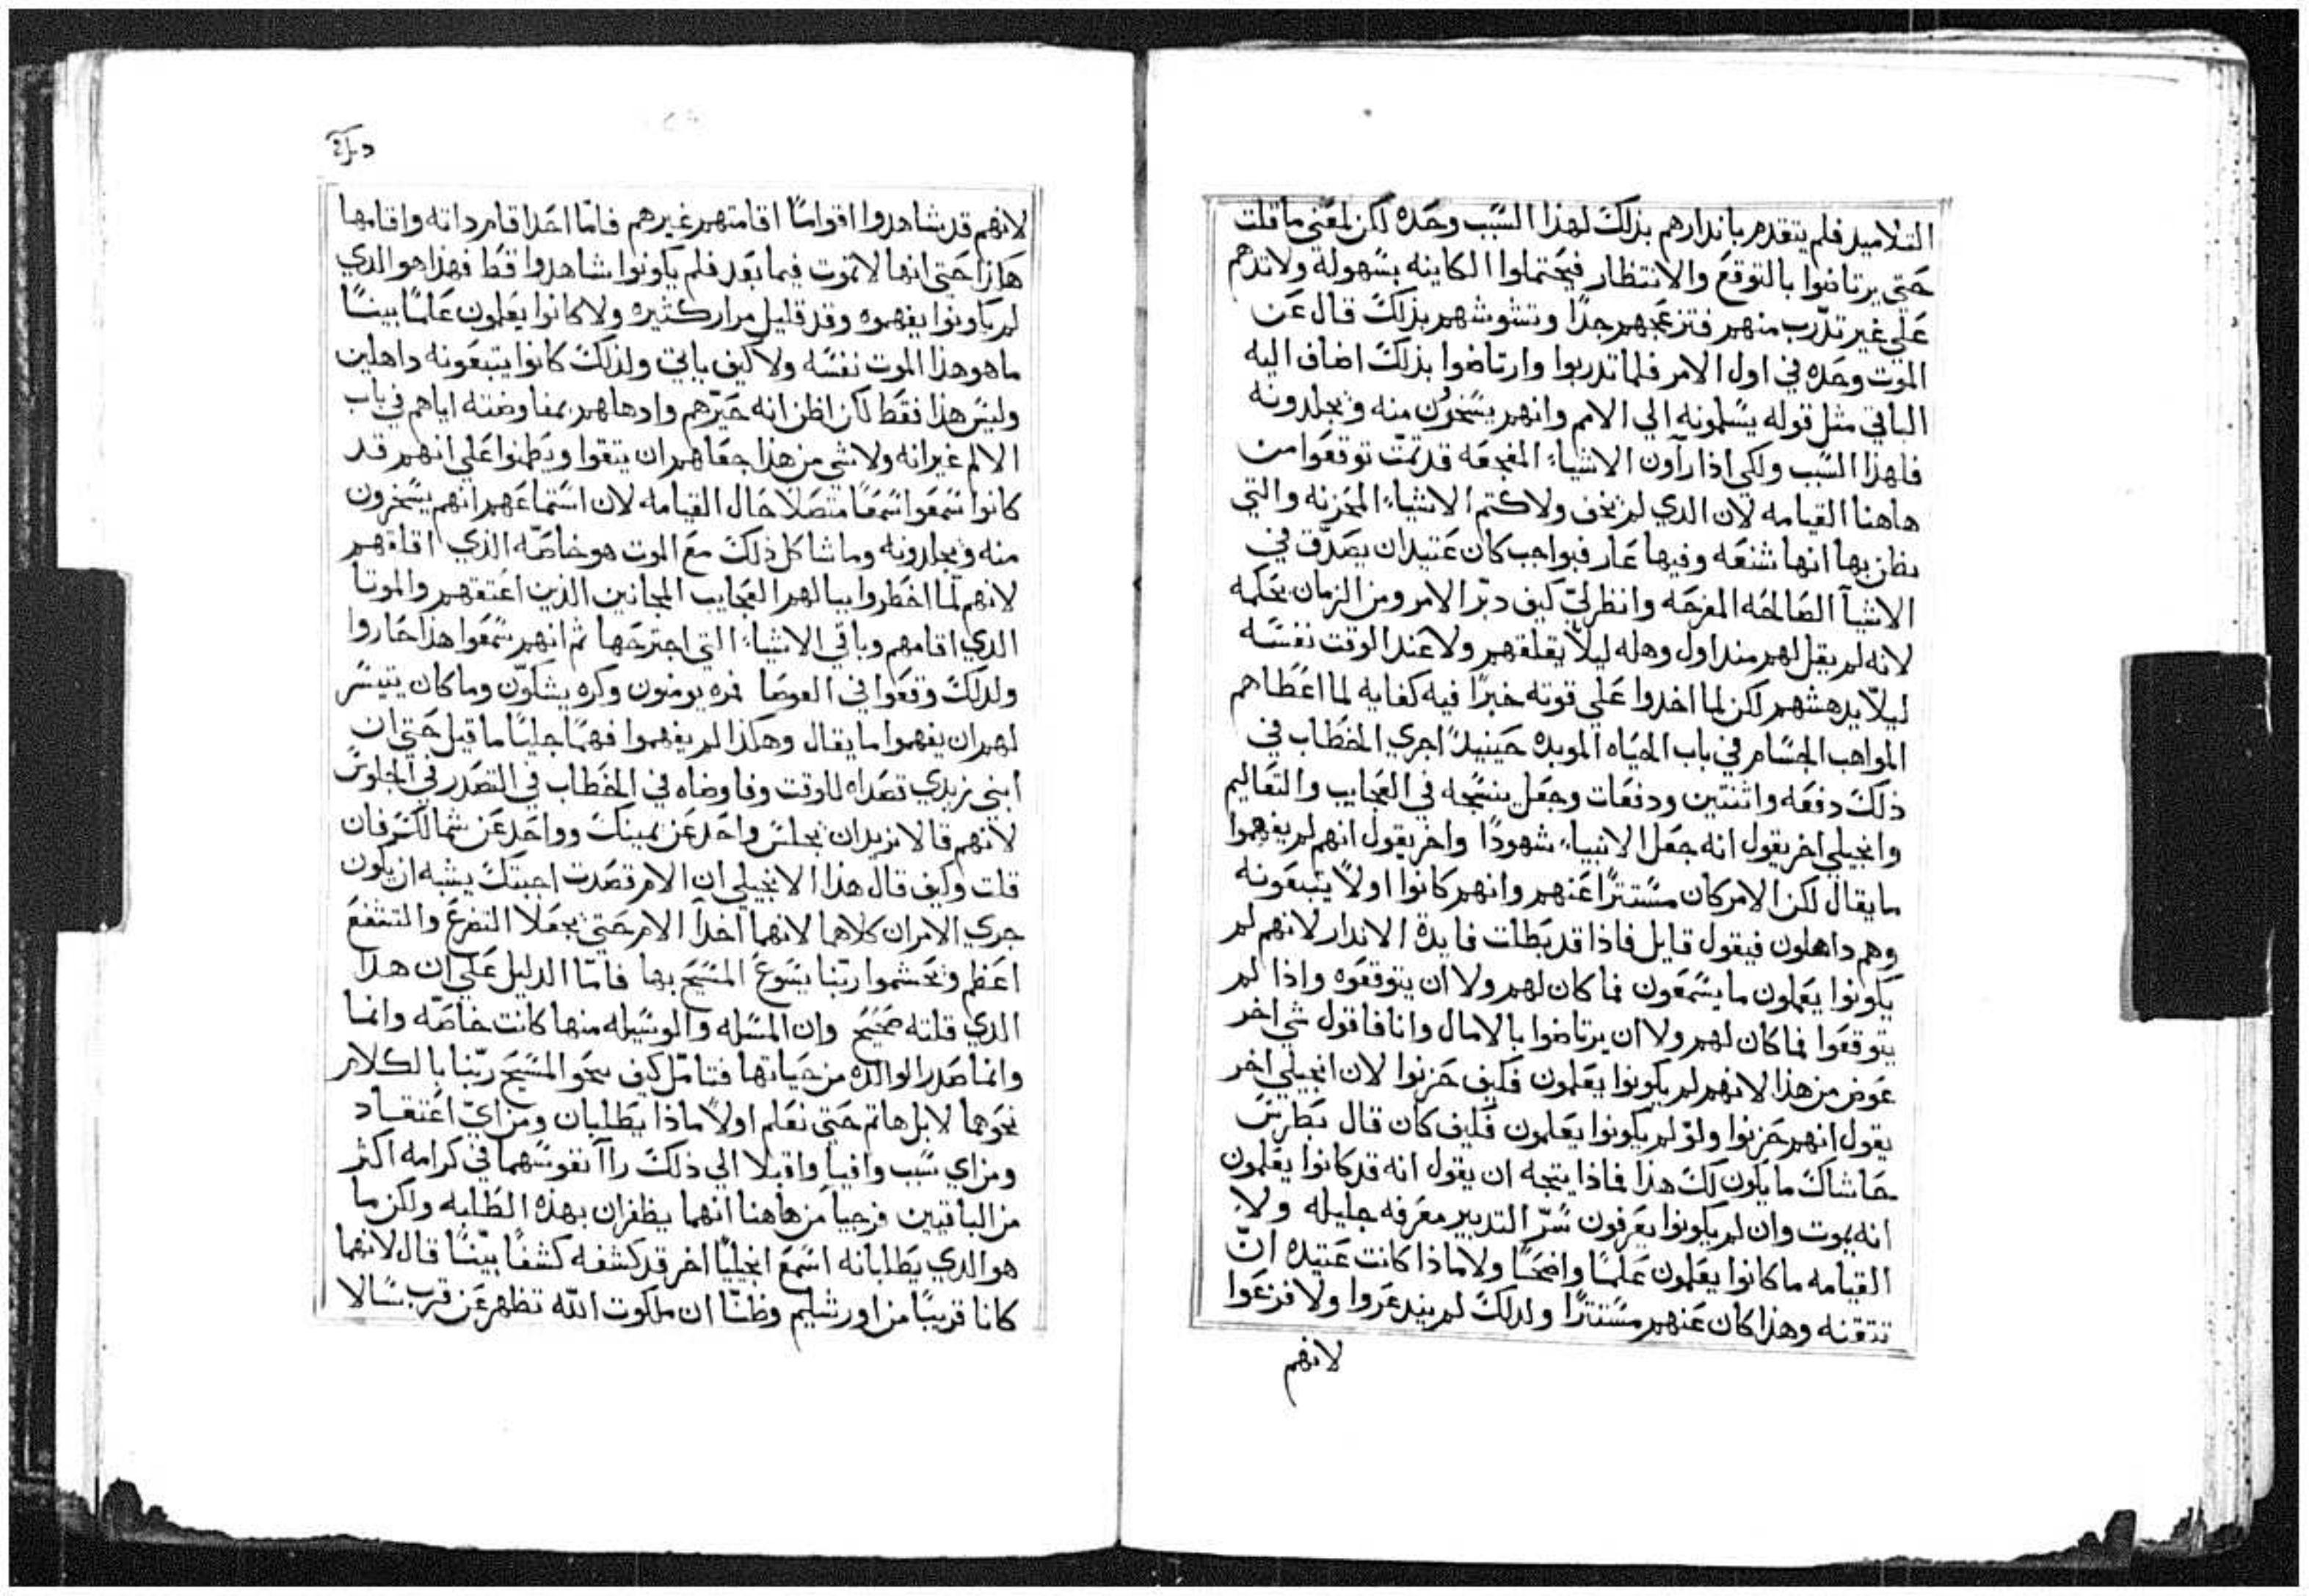 التلاميد فلم يتقدم بانذارهم بذلك لهذا السبب وحده لكن لمعني ما قلت
حتي يرتاضوا بالتوقع والانتظار فيحتملوا الكاينه بسهولة ولا تدهم
علي غير تدرب منهم فتزعجهم جدًا وتشوشهم بذلك قال عن
الموت وحده في اول الامر فلما تدربوا وارتاضوا بذلك اضاف اليه
الباقي مثل قوله يسلمونه الي الامم وانهم يسخرون منه ويجلدونه
فلهذا السبب ولكي اذا رآون الاشياء المفجعه قد تمت توقعوا من
هاهنا القيامه لان الدي لم يخف ولا كتم الاشياء المحزنه والتي
يظن بها انها شنعه وفيها عار فبواجب كان عتيدان يصدق في
الاشيآ الصالحه المفرحه وانظر لي كيف دبر الامر ومن الزمان بحكمه
لانه لم يقل لهم مند اول وهله ليلا يقلقهم ولا عند الوقت نفسه
ليلا يدهشهم لكن لما اخدوا علي قوته خبرًا فيه كفايه لما اعطاهم
المواهب الجسام في باب الحياه الموبده حينيدً اجري الخطاب في
ذلك دفعه واثنتين ودفعات وجعل ينسجه في العجايب والتعاليم
وانجيلي اخر يقول انه جعل الانبياء شهودًا واخر يقول انهم لم يفهموا
ما يقال لكن الامر كان مستترًا عنهم وانهم كانوا اولاً يتبعونه
وهم داهلون فيقول قايل فاذا قد بطلت فايدة الاندار لانهم لم
يكونوا يعلمون ما يسمعون فما كان لهم ولا ان يتوقعوه واذا لم
يتوقعوا فما كان لهم ولا ان يرتاضوا بالامال وانا فاقول شي اخر
عوض من هذا لانهم لم يكونوا يعلمون فكيف حزنوا لان انجيلي اخر
يقول انهم حزنوا ولو لم يكونوا يعلمون فكيف كان قال بطرس
حاشاك ما يكون لك هذا فماذا يتجه ان يقول انه قد كانوا يعلمون
انه يموت وان لم يكونوا يعرفون سر التدبير معرفه جليله ولا
القيامه ما كانوا يعلمون علمًا واضحًا ولا ماذا كانت عتيده ان
تتقنه وهذا كان عنهم مستترًا ولدلك لم يندعروا ولا فزعوا
لانهم
لانهم قد شاهدوا اقوامًا اقامتهم غيرهم فامّا احدا قام داته واقامها
هاذا حتي انها لا تموت فيما بعد فلم يكونوا شاهدوا قط فهذا هو الدي
لم يكونوا يفهموه وقد قليل مرار كثيره ولا كانوا يعلمون علمًا بينًا
ما هو هذا الموت نفسه ولا كيف ياتي ولذلك كانوا يتبعونه داهلين
وليس هذا فقط لكن اظن انه حيرهم وادهاهم بمفاوضته اياهم في باب
الالم غير انه ولا شي من هذا جعلهم ان يتقوا ويطمنوا علي انهم قد
كانوا سمعوا سمعًا متصلاً حال القيامه لان استماعهم انهم يسخرون
منه ويجلدونه وما شاكل ذلك مع الموت هو خاصه الذي اقلقهم
لانهم لما اخطروا ببالهم العجايب المجانين الذين اعتقهم والموتا
الدي اقامهم وباقي الاشياء التي اجترحها ثم انهم سمعوا هذا حاروا
ولدلك وقعوا في العوصا فمره يومنون وكره يشكون وما كان يتيسر
لهم ان يفهموا ما يقال وهكذا لم يفهموا فهمًا جليًا ما قيل حتي ان
ابني زبدي تصداه للوقت وفاوضاه في الخطاب في التصدر في الجلوس
لانهم قالا نريد ان يجلس واحد عن يمينك وواحد عن شمالك فان
قلت وكيف قال هذا الانجيلي ان الام قصدت اجبتك يشبه ان يكون
جري الامران كلاهما لانهما اخدا الام حتي يجعلا التضرع والتشفع
اعظم ويحتشموا ربنا يسوع المسيح بها فامّا الدليل علي ان هذا
الدي قلته صحيح وان المسله والوسيله منها كانت خاصه وانما
وانما صدر الوالده من حياتها فتامل كيف نحو المسيح ربنا بالكلام
نحوهما لا بل هاتم حتي نعلم اولاً ماذا يطلبان ومن اي اعتقاد
ومن اي سبب وافيا واقبلا الي ذلك راآ نفوسهما في كرامه اكثر
من الباقيين فرجيا من هاهنا انهما يظفران بهذه الطلبه ولكن ما
هو الدي يطلبانه اسمع انجليًا اخر قد كشفه كشفًا بينًا قال لانهما
كانا قريبًا من اورشليم وظنّا ان ملكوت الله تظهر عن قرب سالا